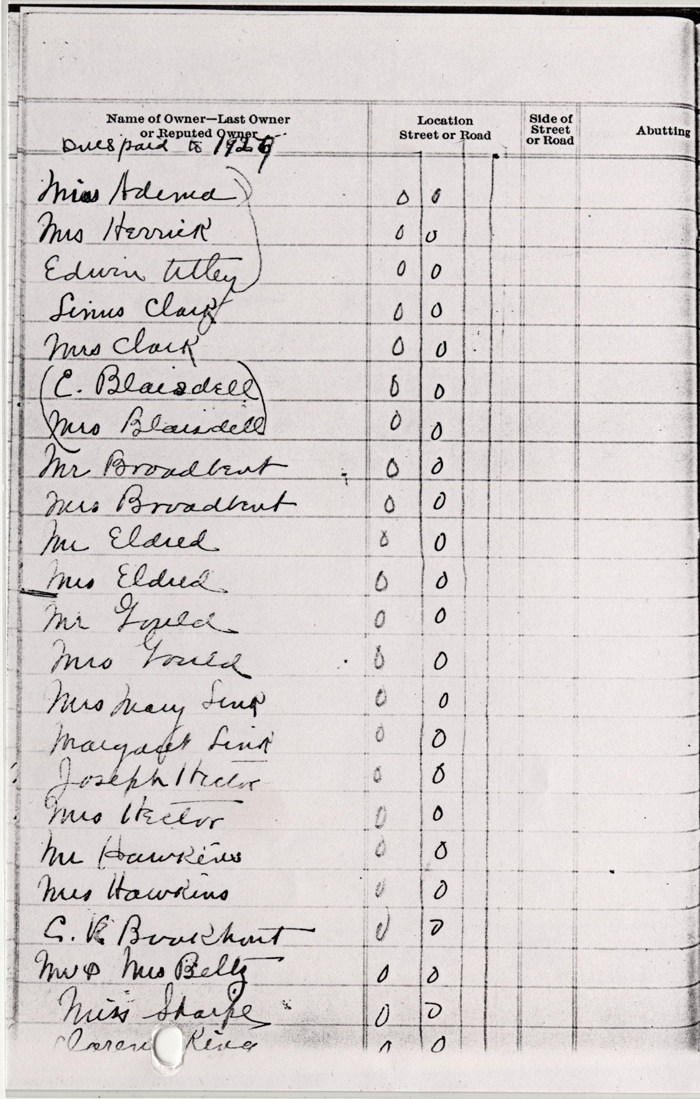 Name of Owner—Last Owner
or Reputed Owner
Location
Street or Road
Side of
Street
or Road
Abutting
Dues paid to 1929
Miss Adema 0 0
Mrs Herrick 0 0
Edwin Utley 0 0
Linus Clark 0 0
Mrs Clark 0 0
C. Blaisdell 0 0
Mrs Blaisdell 0 0
Mr Broadbent 0 0
Mrs Broadbent 0 0
Mr Eldred 0 0
Mrs Eldred 0 0
Mr Gould 0 0
Mrs Gould 0 0
Mrs Mary Link 0 0
Margaret Link 0 0
Joseph Hector 0 0
Mrs Hector 0 0
Mr Hawkins 0 0
Mrs Hawkins 0 0
Bookhout 0 0
Mr & Mrs Beltz 0 0
Miss Sharpe 0 0
King 0 0